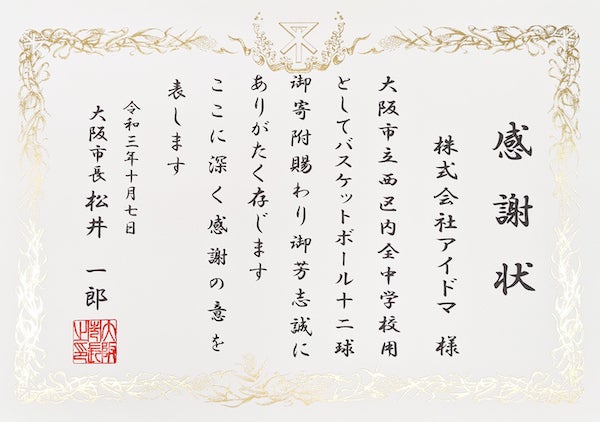 感謝状
株式会社アイドマ 様
大阪市立西区内全中学校用
としてバスケットボール十二球
御寄附賜わり御芳志誠に
ありがたく存じます
ここに深く感謝の意を
表します
令和三年十月七日
大阪市長 松井 一郎
大阪市長之印